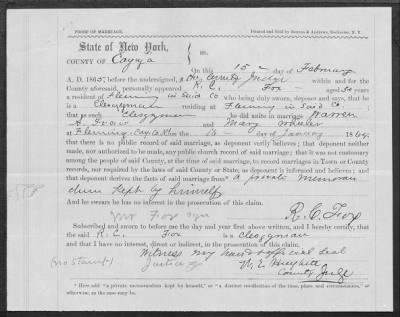 PROOF OF MARRIAGE.
State of New York,
COUNTY OF Cayuga } ss.
On this 15 day of February
A. D. 1865, before the undersigned, a County Judge within and for the
County aforesaid, personally appeared R. C. Fox aged 50 years
a resident of Fleming in said Co who being duly sworn, deposes and says, that he
is a Clergyman residing at Fleming in said Co.
that as such Clergyman he did unite in marriage Warren
and Mary
at Fleming Cayuga Co on the 16 day of January 1864;
that there is no public record of said marriage, as deponent verily believes; that deponent neither
made, nor authorized to be made, any public church record of said marriage; that it was not customary
among the people of said County, at the time of said marriage, to record marriages in Town or County
records, nor required by the laws of said County or State, as deponent is informed and believes; and
that deponent derives the facts of said marriage from* a private memoran
dum kept by himself
And he swears he has no interest in the prosecution of this claim.
R. C. Fox
Subscribed and sworn to before me the day and year first above written, and I hereby certify, that
the said R. C. Fox is a Clergyman
and that I have no interest, direct or indirect, in the prosecution of this claim.
Witness my hand & official seal
(no stamp)
County Judge
* Here add "a private memorandum kept by himself," or "a distinct recollection of the time, place and circumstances," or
otherwise, as the case may be.